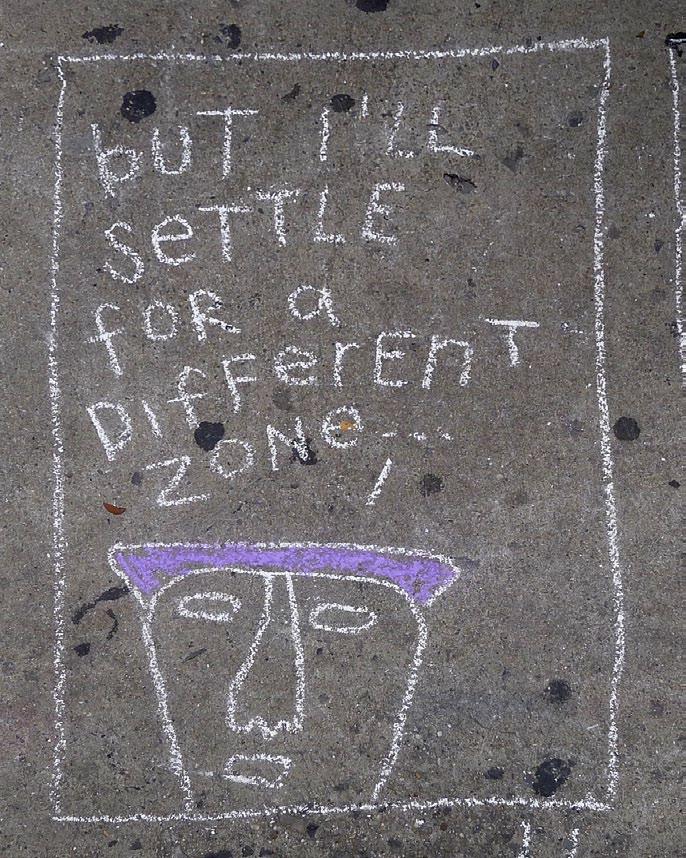 bUT I'LL
SeTTLE
foR a
DIffFerEnT
ZONe...